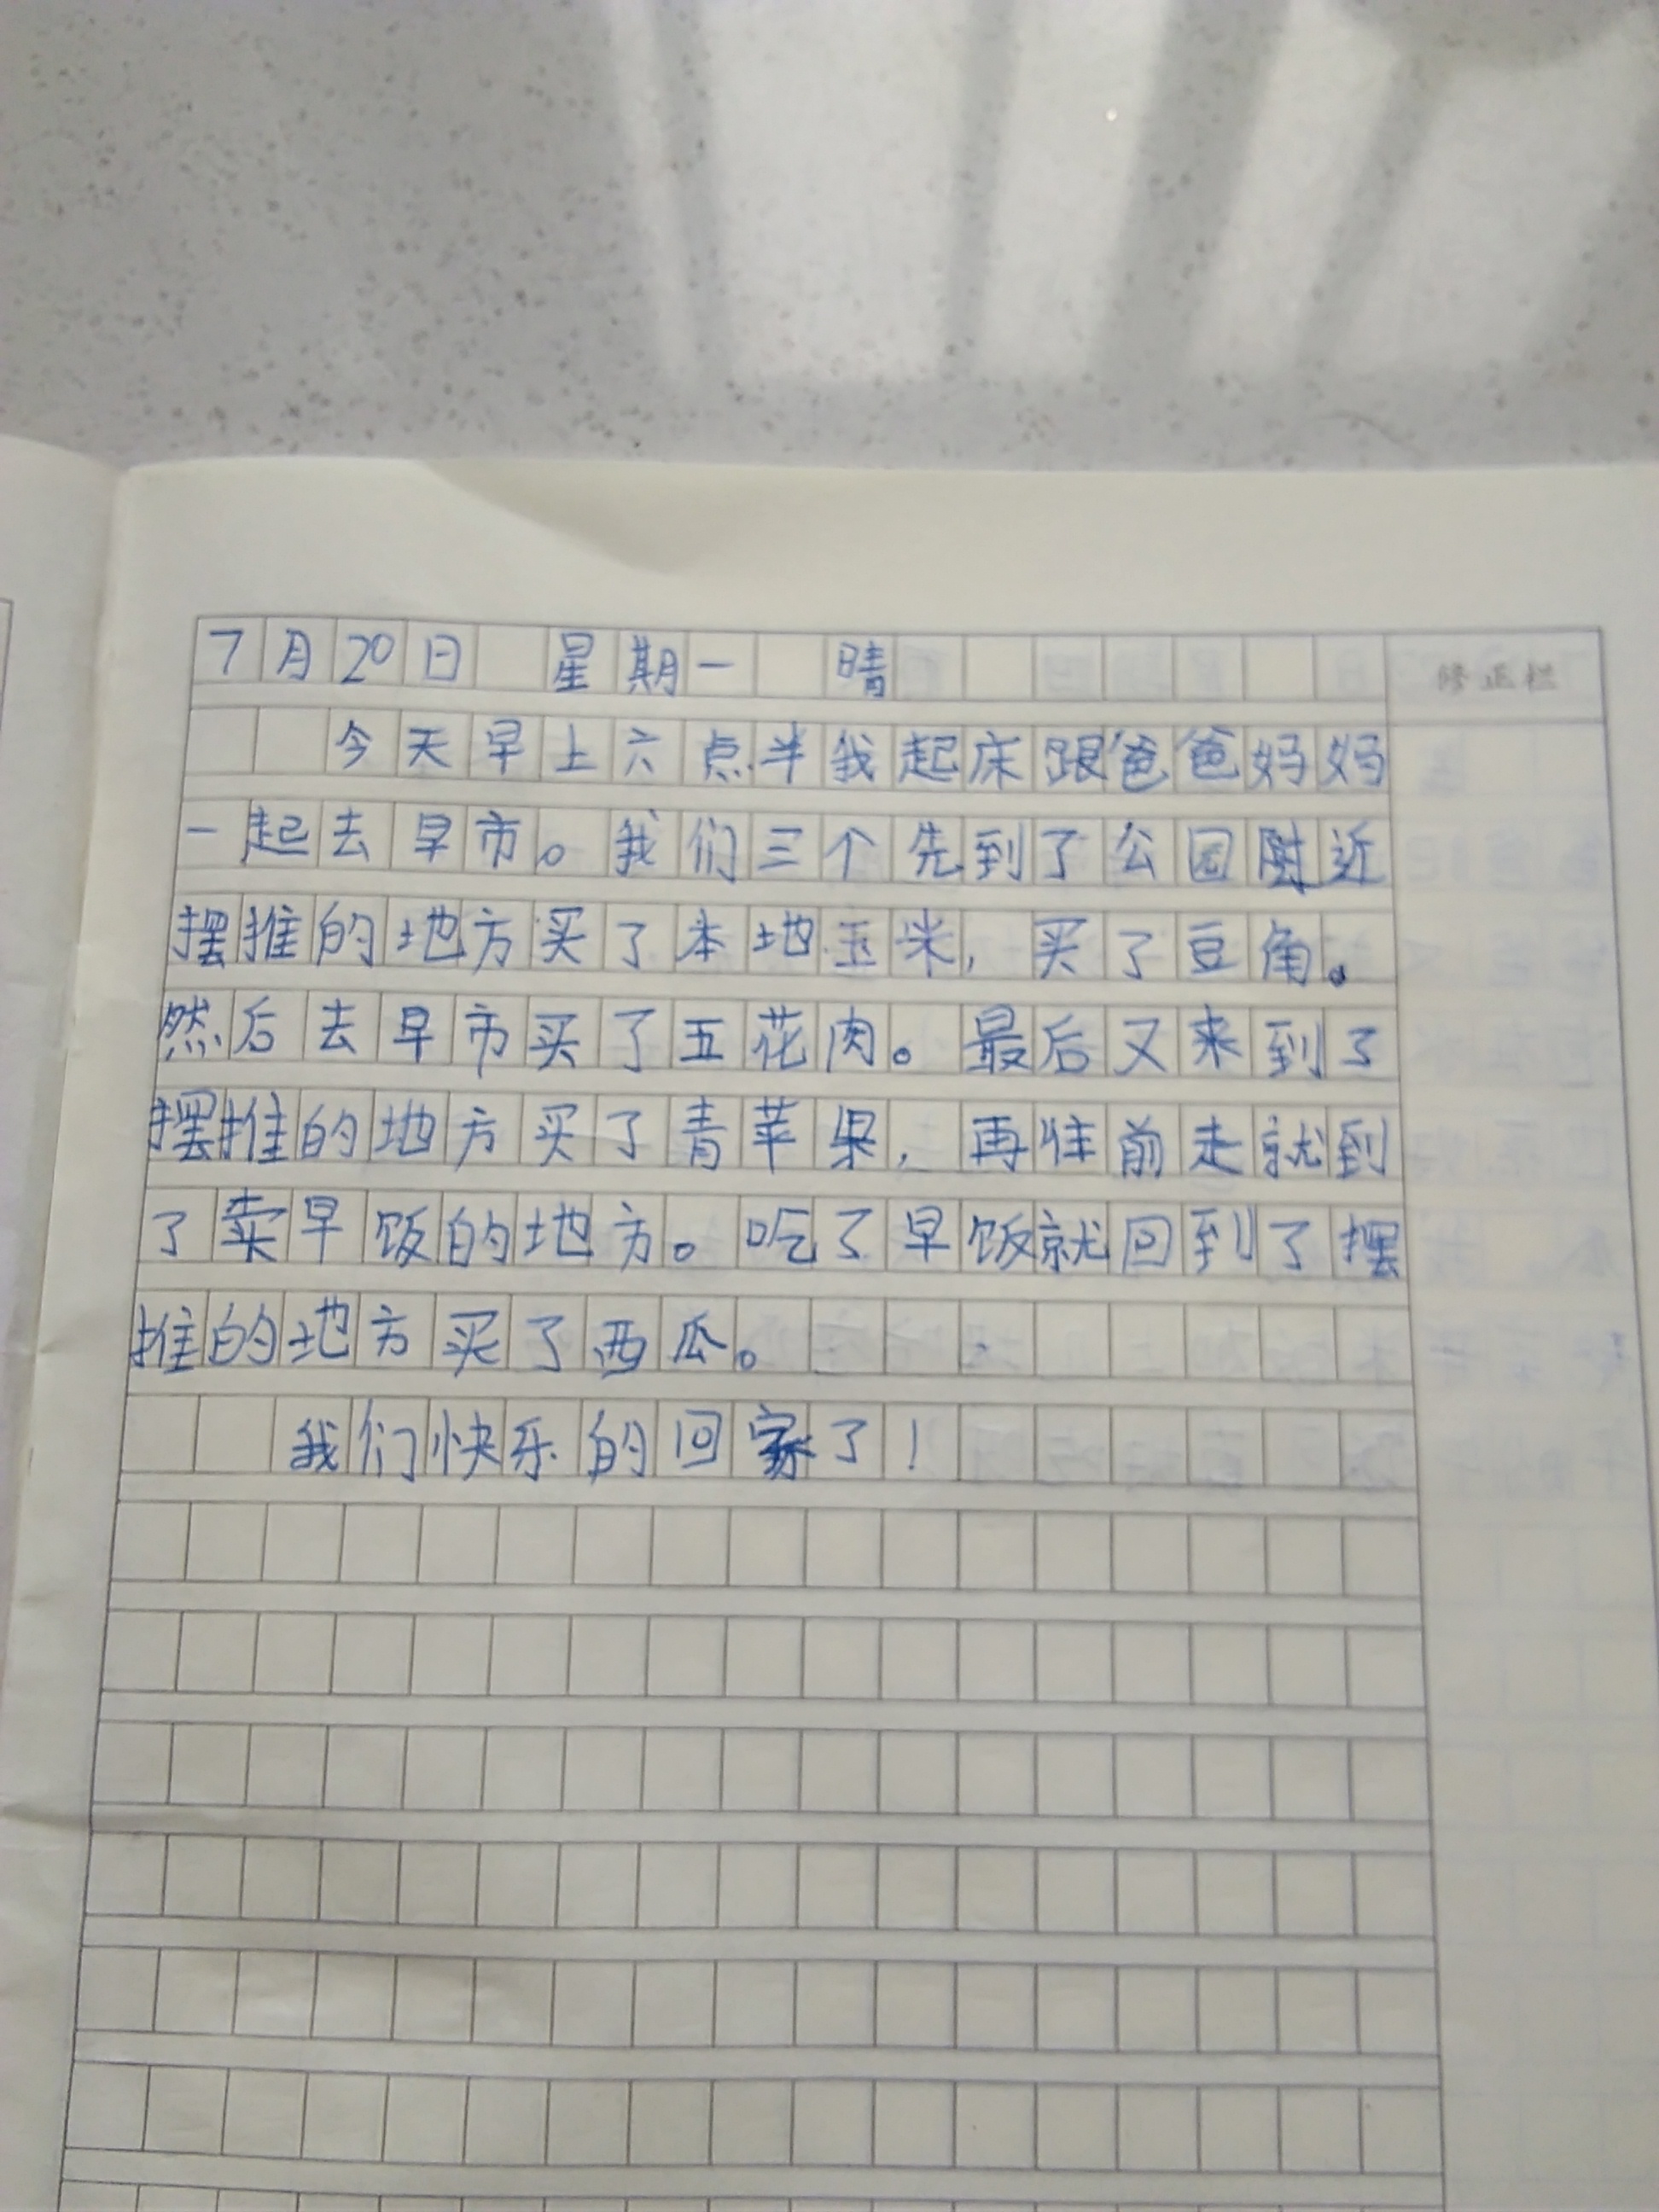 7月20日 星期一 晴
修正栏
今天早上六点半我起床跟爸爸妈妈
一起去早市。我们三个先到了公园附近
摆推的地方买了本地玉米，买了豆角。
然后去早市买了五花肉。最后又来到了
摆推的地方买了青苹果，再往前走就到
了卖早饭的地方。吃了早饭就回到了摆
推的地方买了西瓜。
我们快乐的回家了！